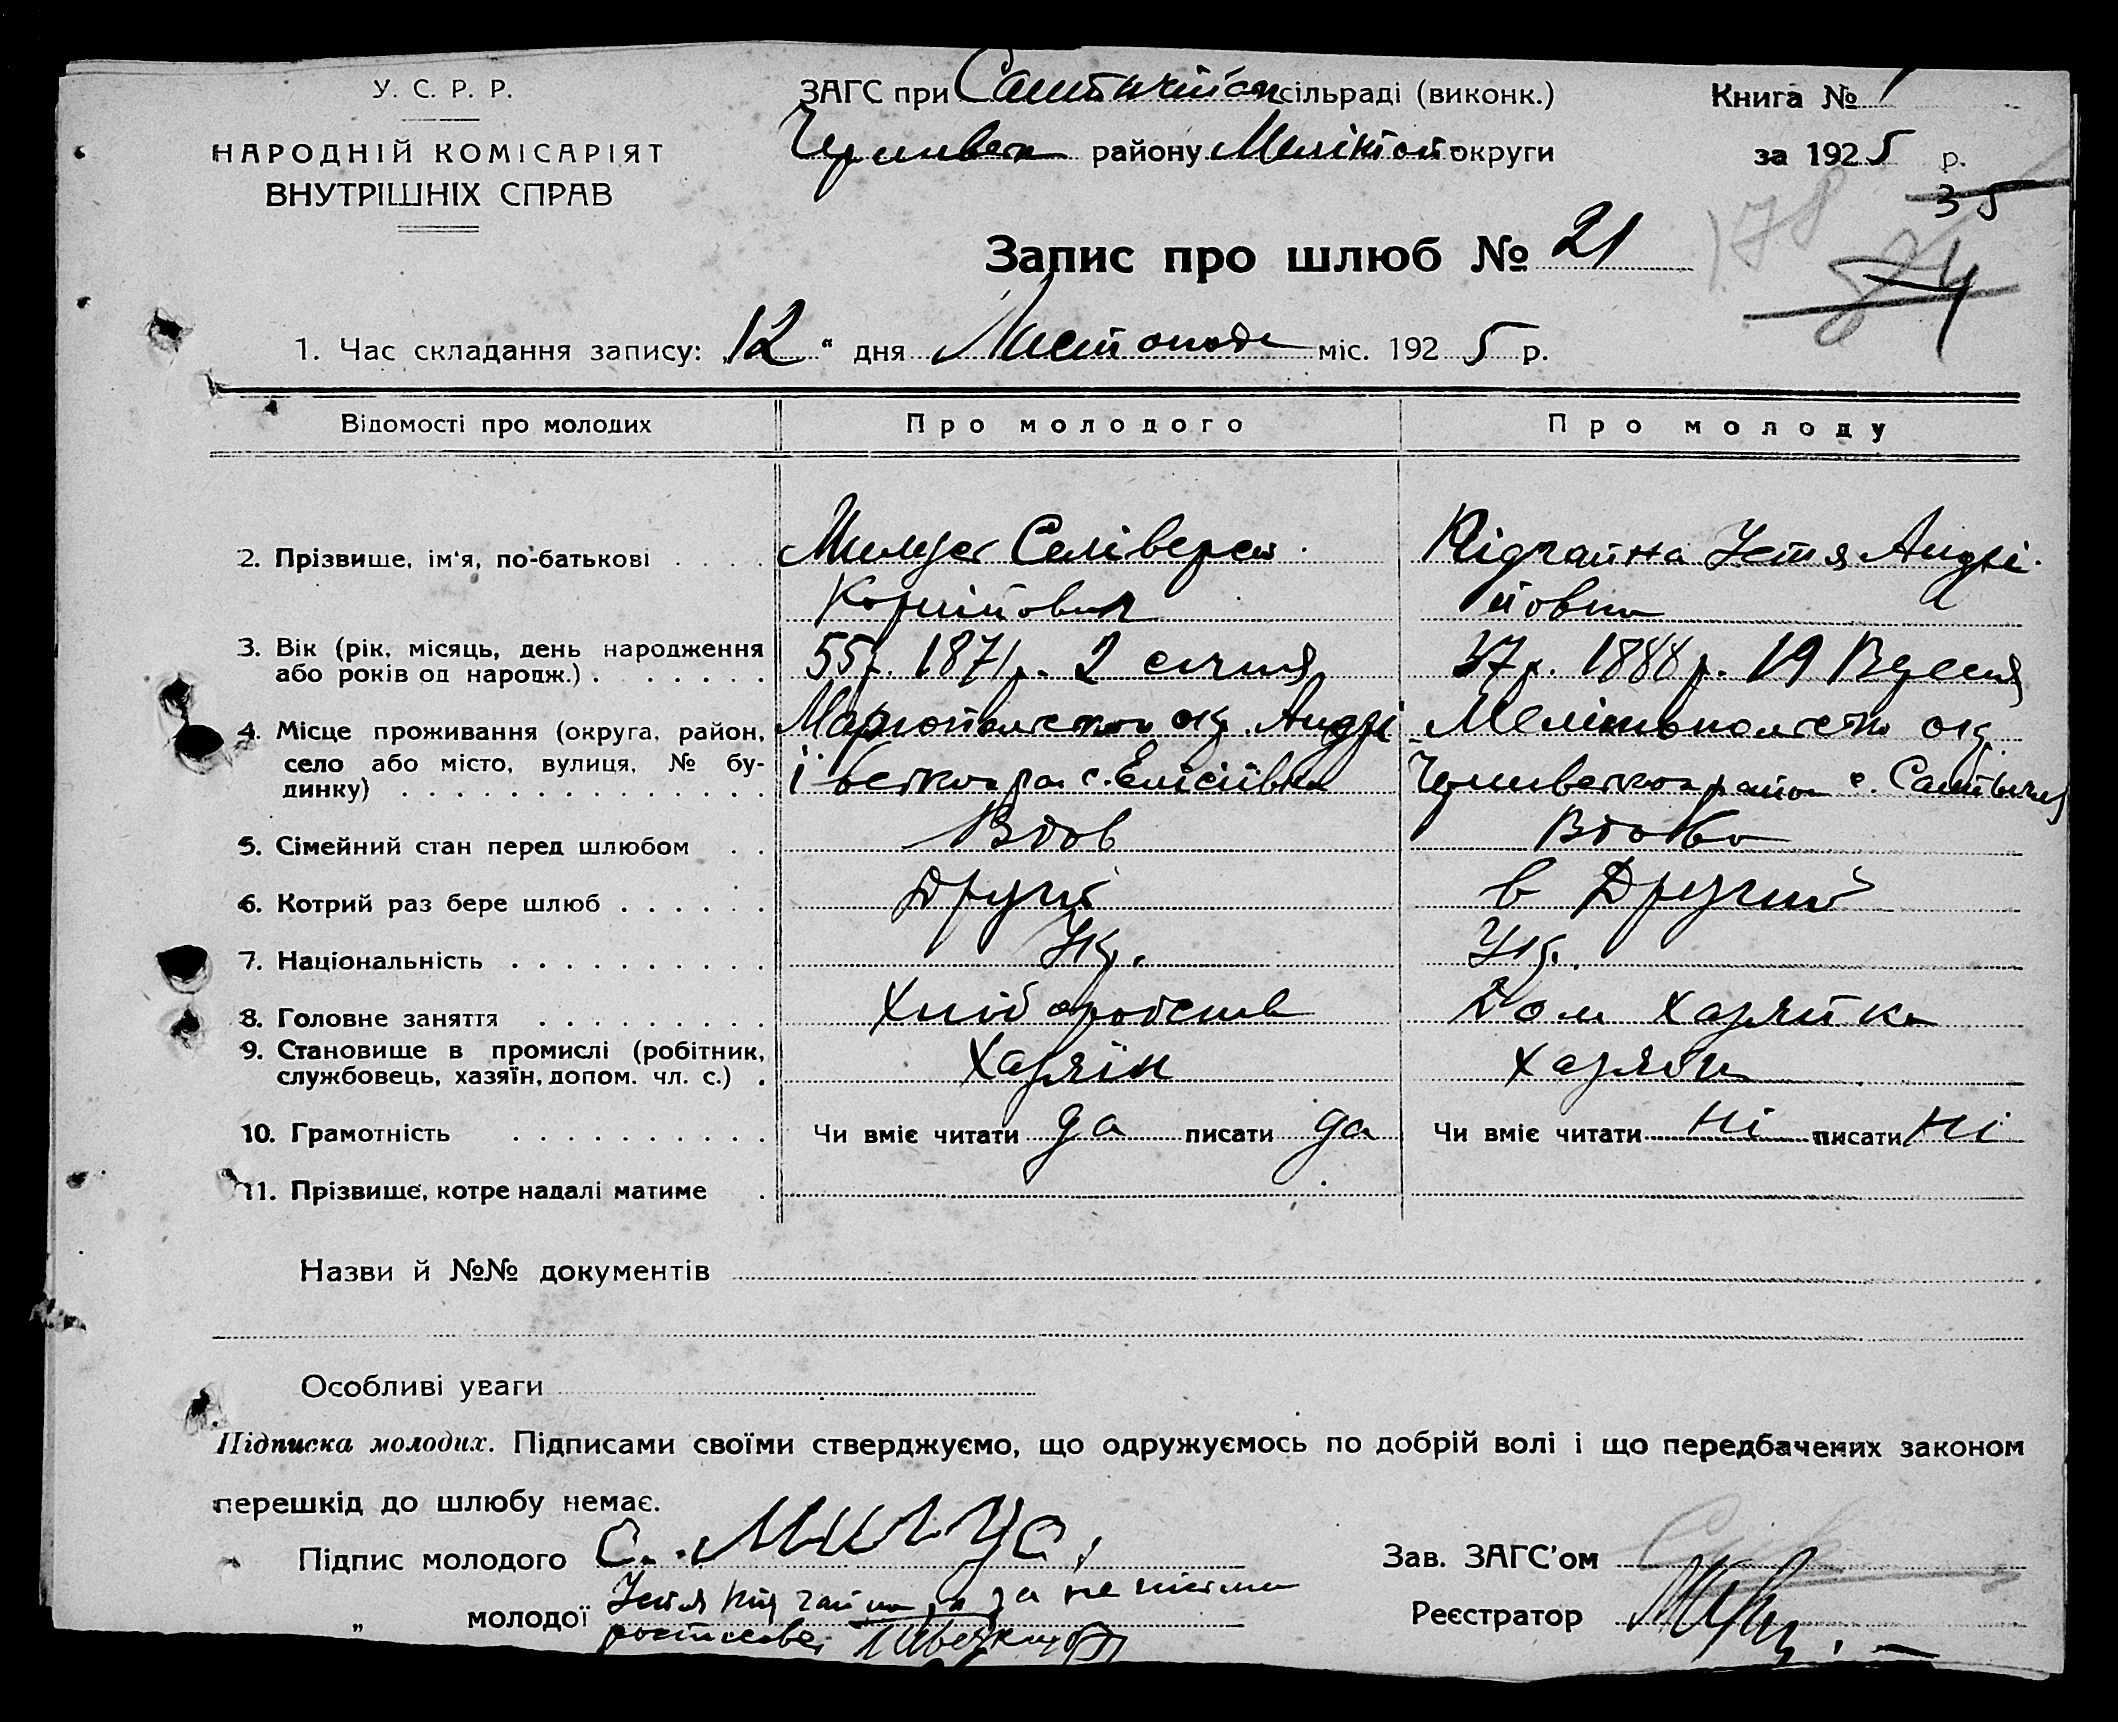 У. С. Р. Р.
НАРОДНІЙ КОМІСАРІЯТ
ВНУТРІШНІХ СПРАВ
ЗАГС при сільраді (виконк.)
району округи
Книга № 1
за 1925 р.
35
178
84
Запис про шлюб № 21
1. Час складання запису: „12“ дня Листопада міс. 1925 р.
Відомості про молодих Про молодого Про молоду
2. Прізвище, ім'я, по-батькові . . . . Селіверст Кідчайна Устя Андрі-
Корнійович йовна
3. Вік (рік, місяць, день народження
або років од народж.) . . . . . . . 55 р. 1871 р. 2 січня 37 р. 1888 р. 19 Вересня
4. Місце проживання (округа, район,
село або місто, вулиця, № бу-
динку) . . . . . . . . . . . . . . Маріопольскои ок. Андрі Мелітопольскои ок.
івскаго ра с. Елісіівка район с.
5. Сімейний стан перед шлюбом . . Вдов Вдова
6. Котрий раз бере шлюб . . . . . . Другі в Другий
7. Національність . . . . . . . . . . Ук. Ук.
8. Головне заняття . . . . . . . . . Хліборобство Дом Хазяйка
9. Становище в промислі (робітник,
службовець, хазяїн, допом. чл. с.) . Хазяін Хазяін
10. Грамотність . . . . . . . . . . Чи вміє читати да писати да Чи вміє читати ні писати ні
11. Прізвище, котре надалі матиме .
Назви й №№ документів
Особливі уваги
Підписка молодих. Підписами своїми стверджуємо, що одружуємось по добрій волі і що передбачених законом
перешкід до шлюбу немає.
Підпис молодого С. Зав. ЗАГС'ом
„ молодої Устя Кідчайна а за не Реєстратор